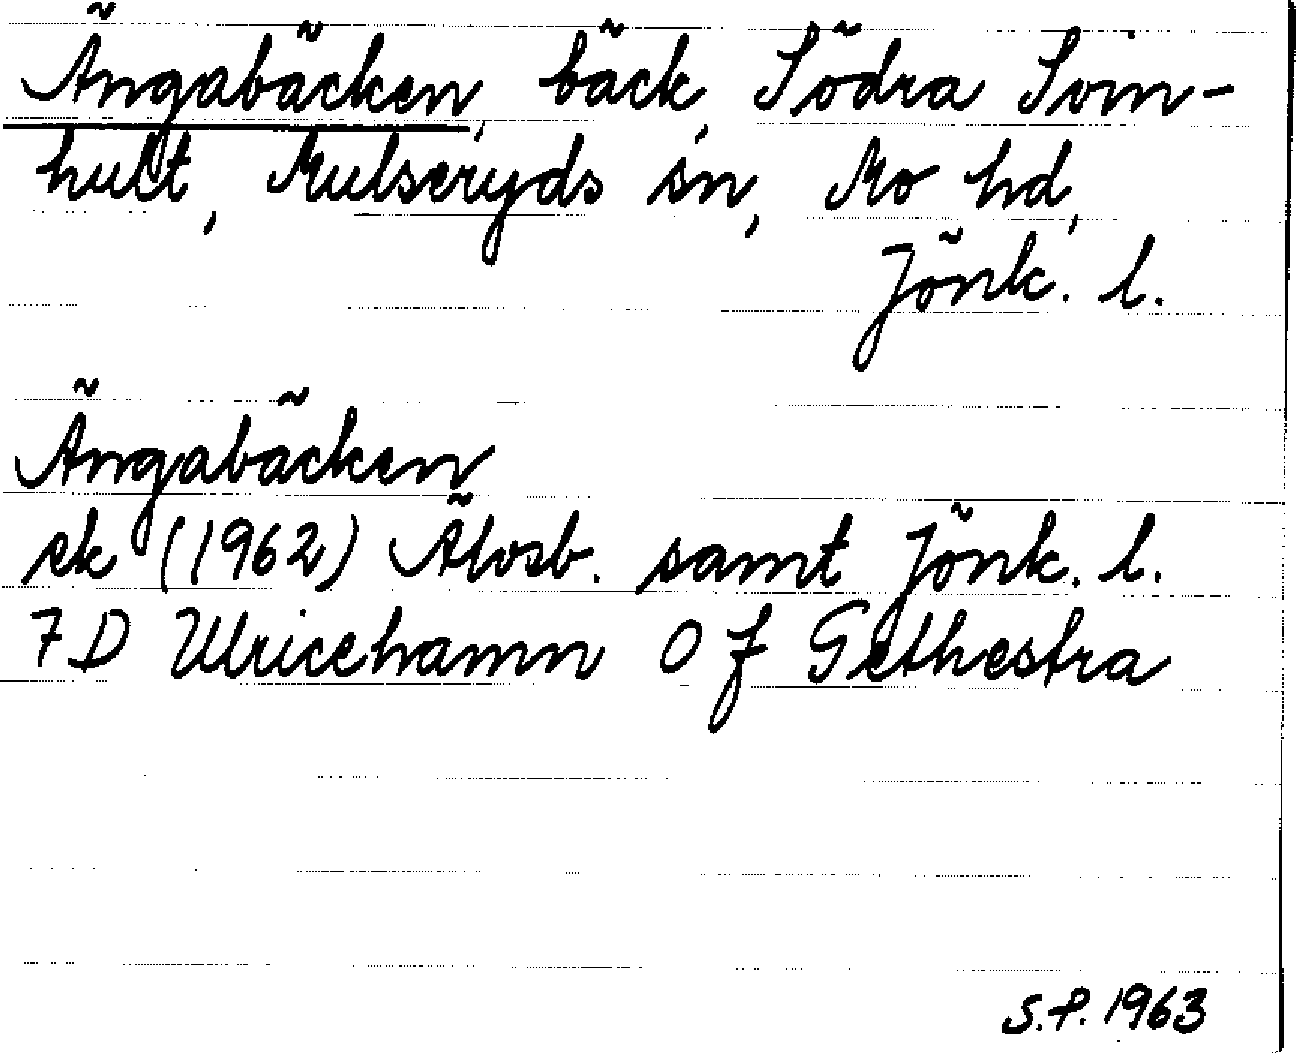 Ängabäcken, bäck, Södra Svin-
hult, Mulseryds sn, Mo hd,
Jönk. l.
Ängabäcken
ek (1962) Älvsb. samt Jönk. l.
7 D Ulricehamn 0 f Grethestra
S.P. 1963